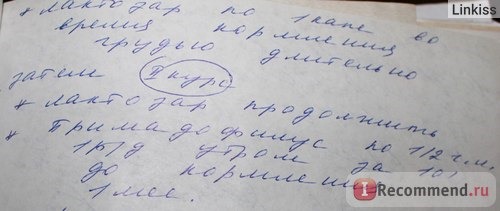 Linkiss
* Лактозар по 1 капс во
время кормления
грудью длительно
затем II курс
* Лактозар продолжить
* Примадофилус по 1/2 ч.л.
1 р/д утром за 10'
до кормления
1 мес.
iRecommend.ru